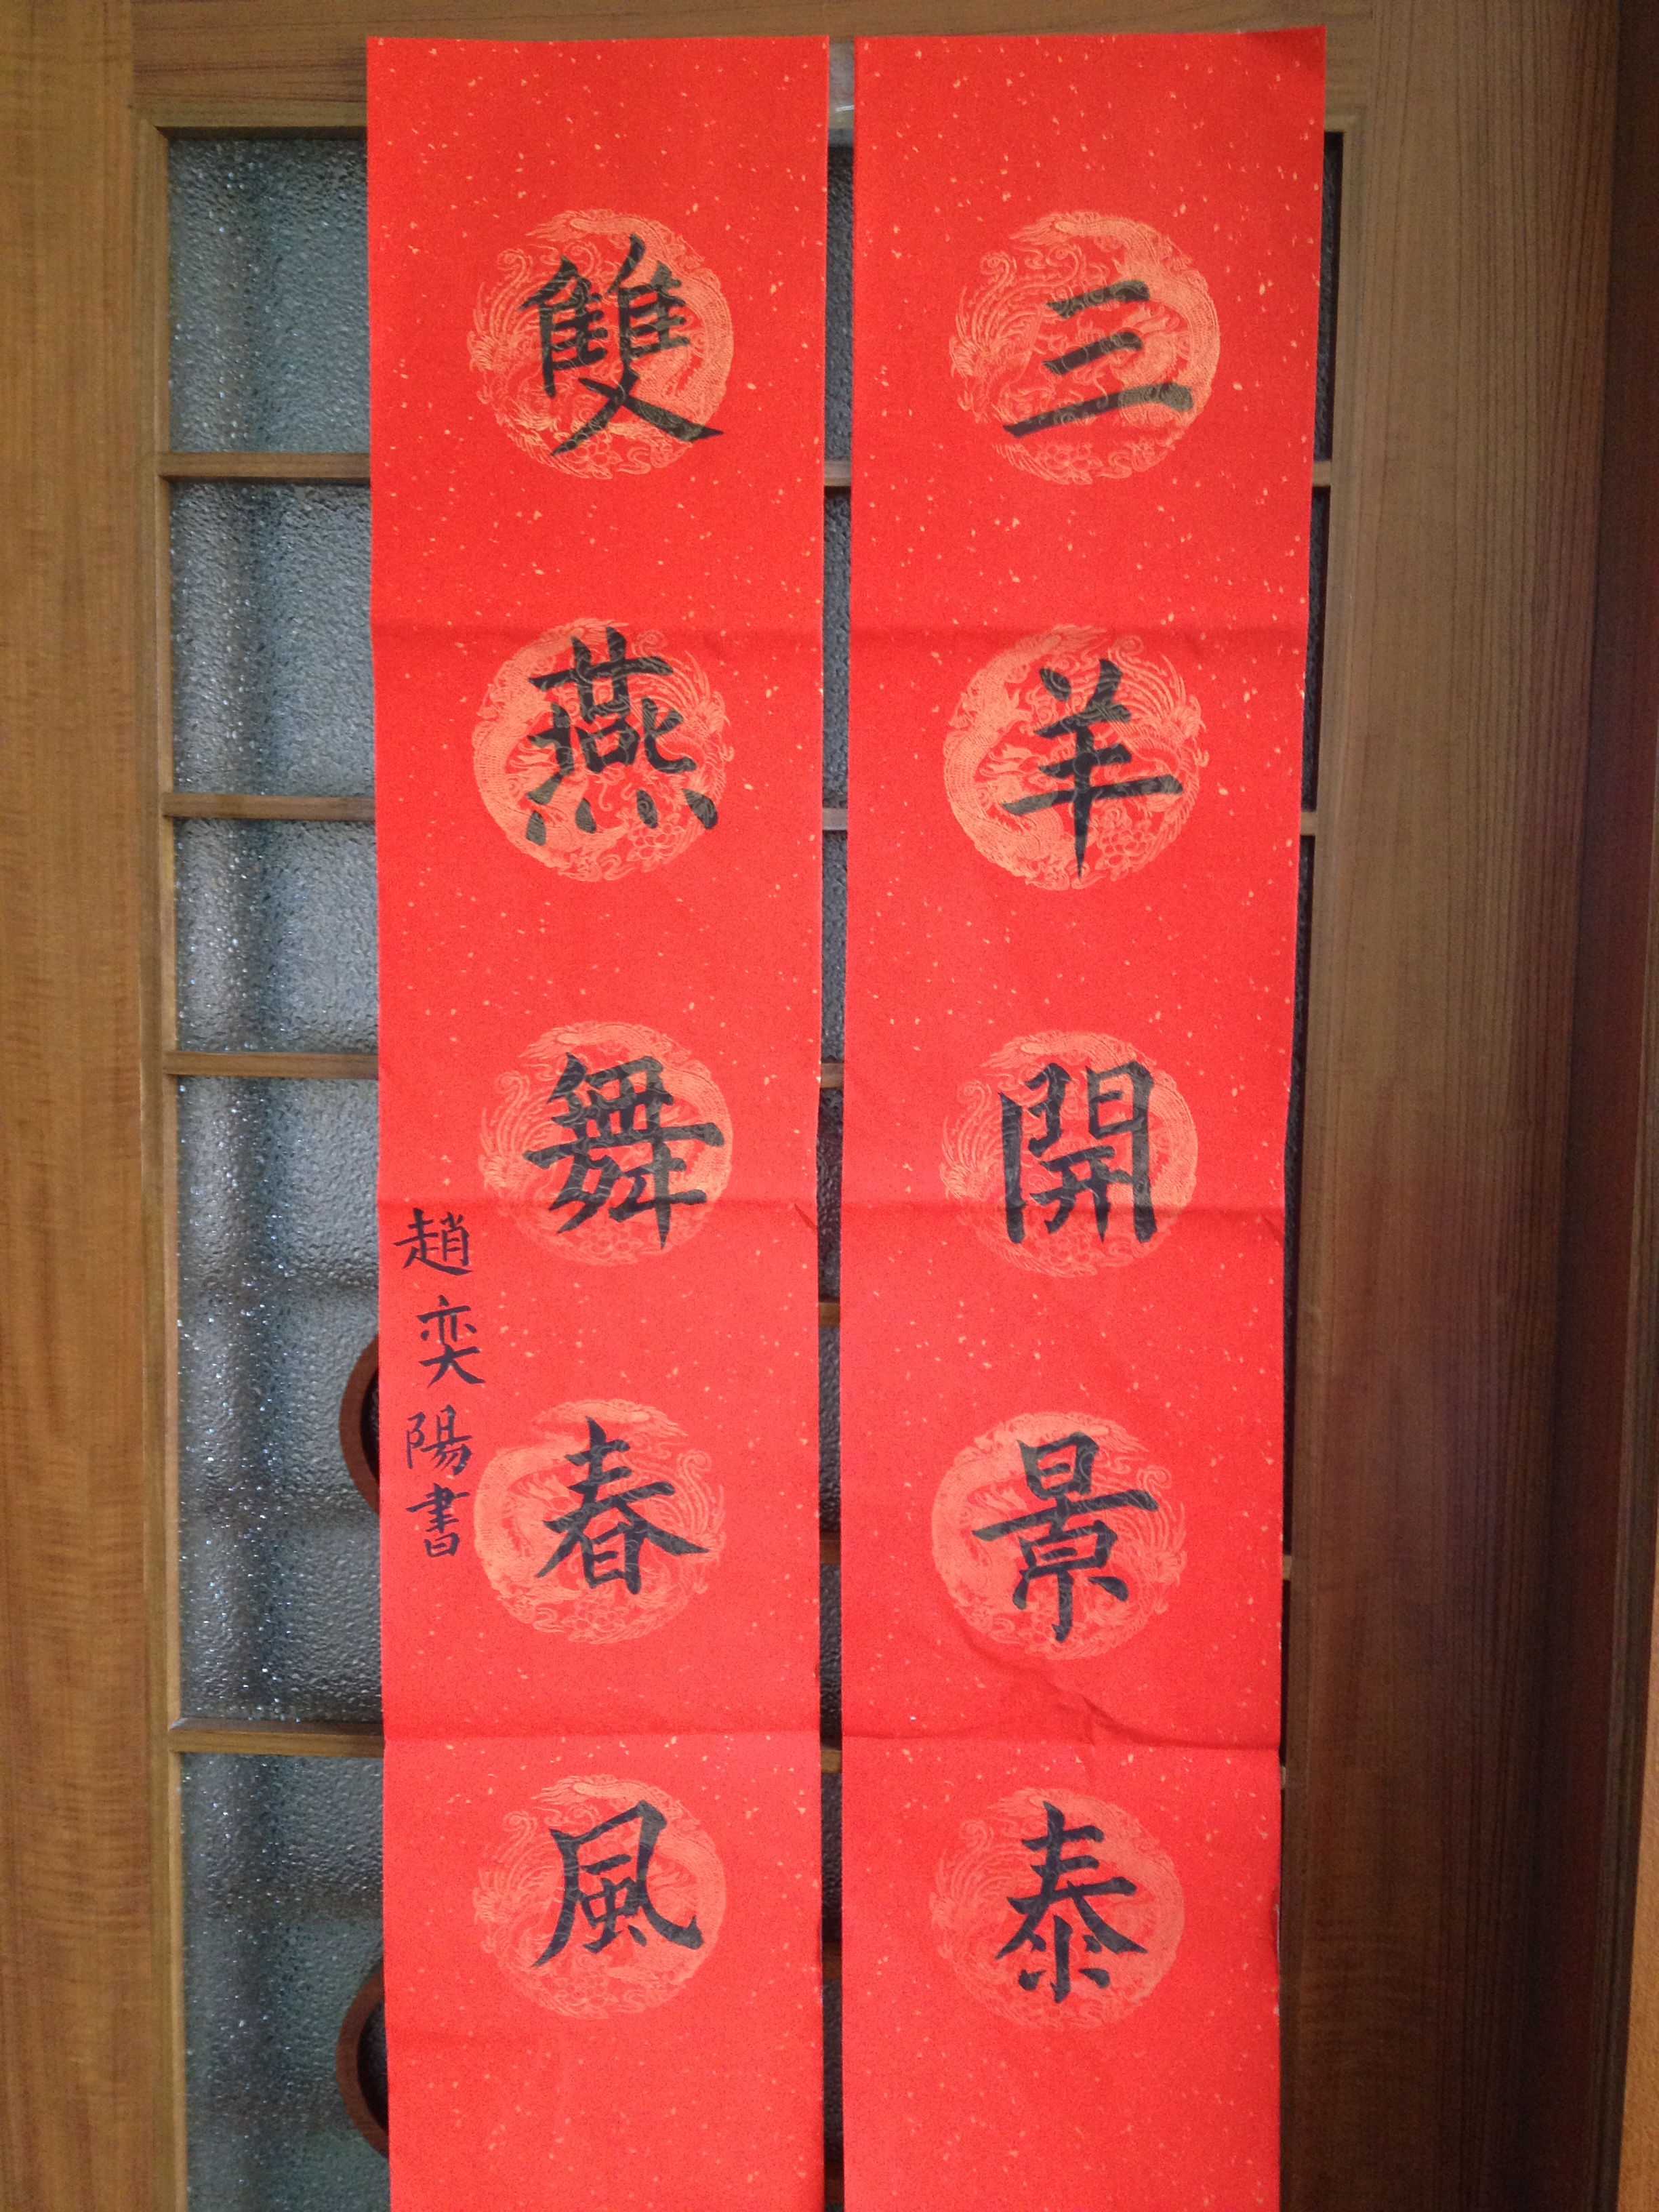 三羊開景泰
雙燕舞春風
趙奕陽書